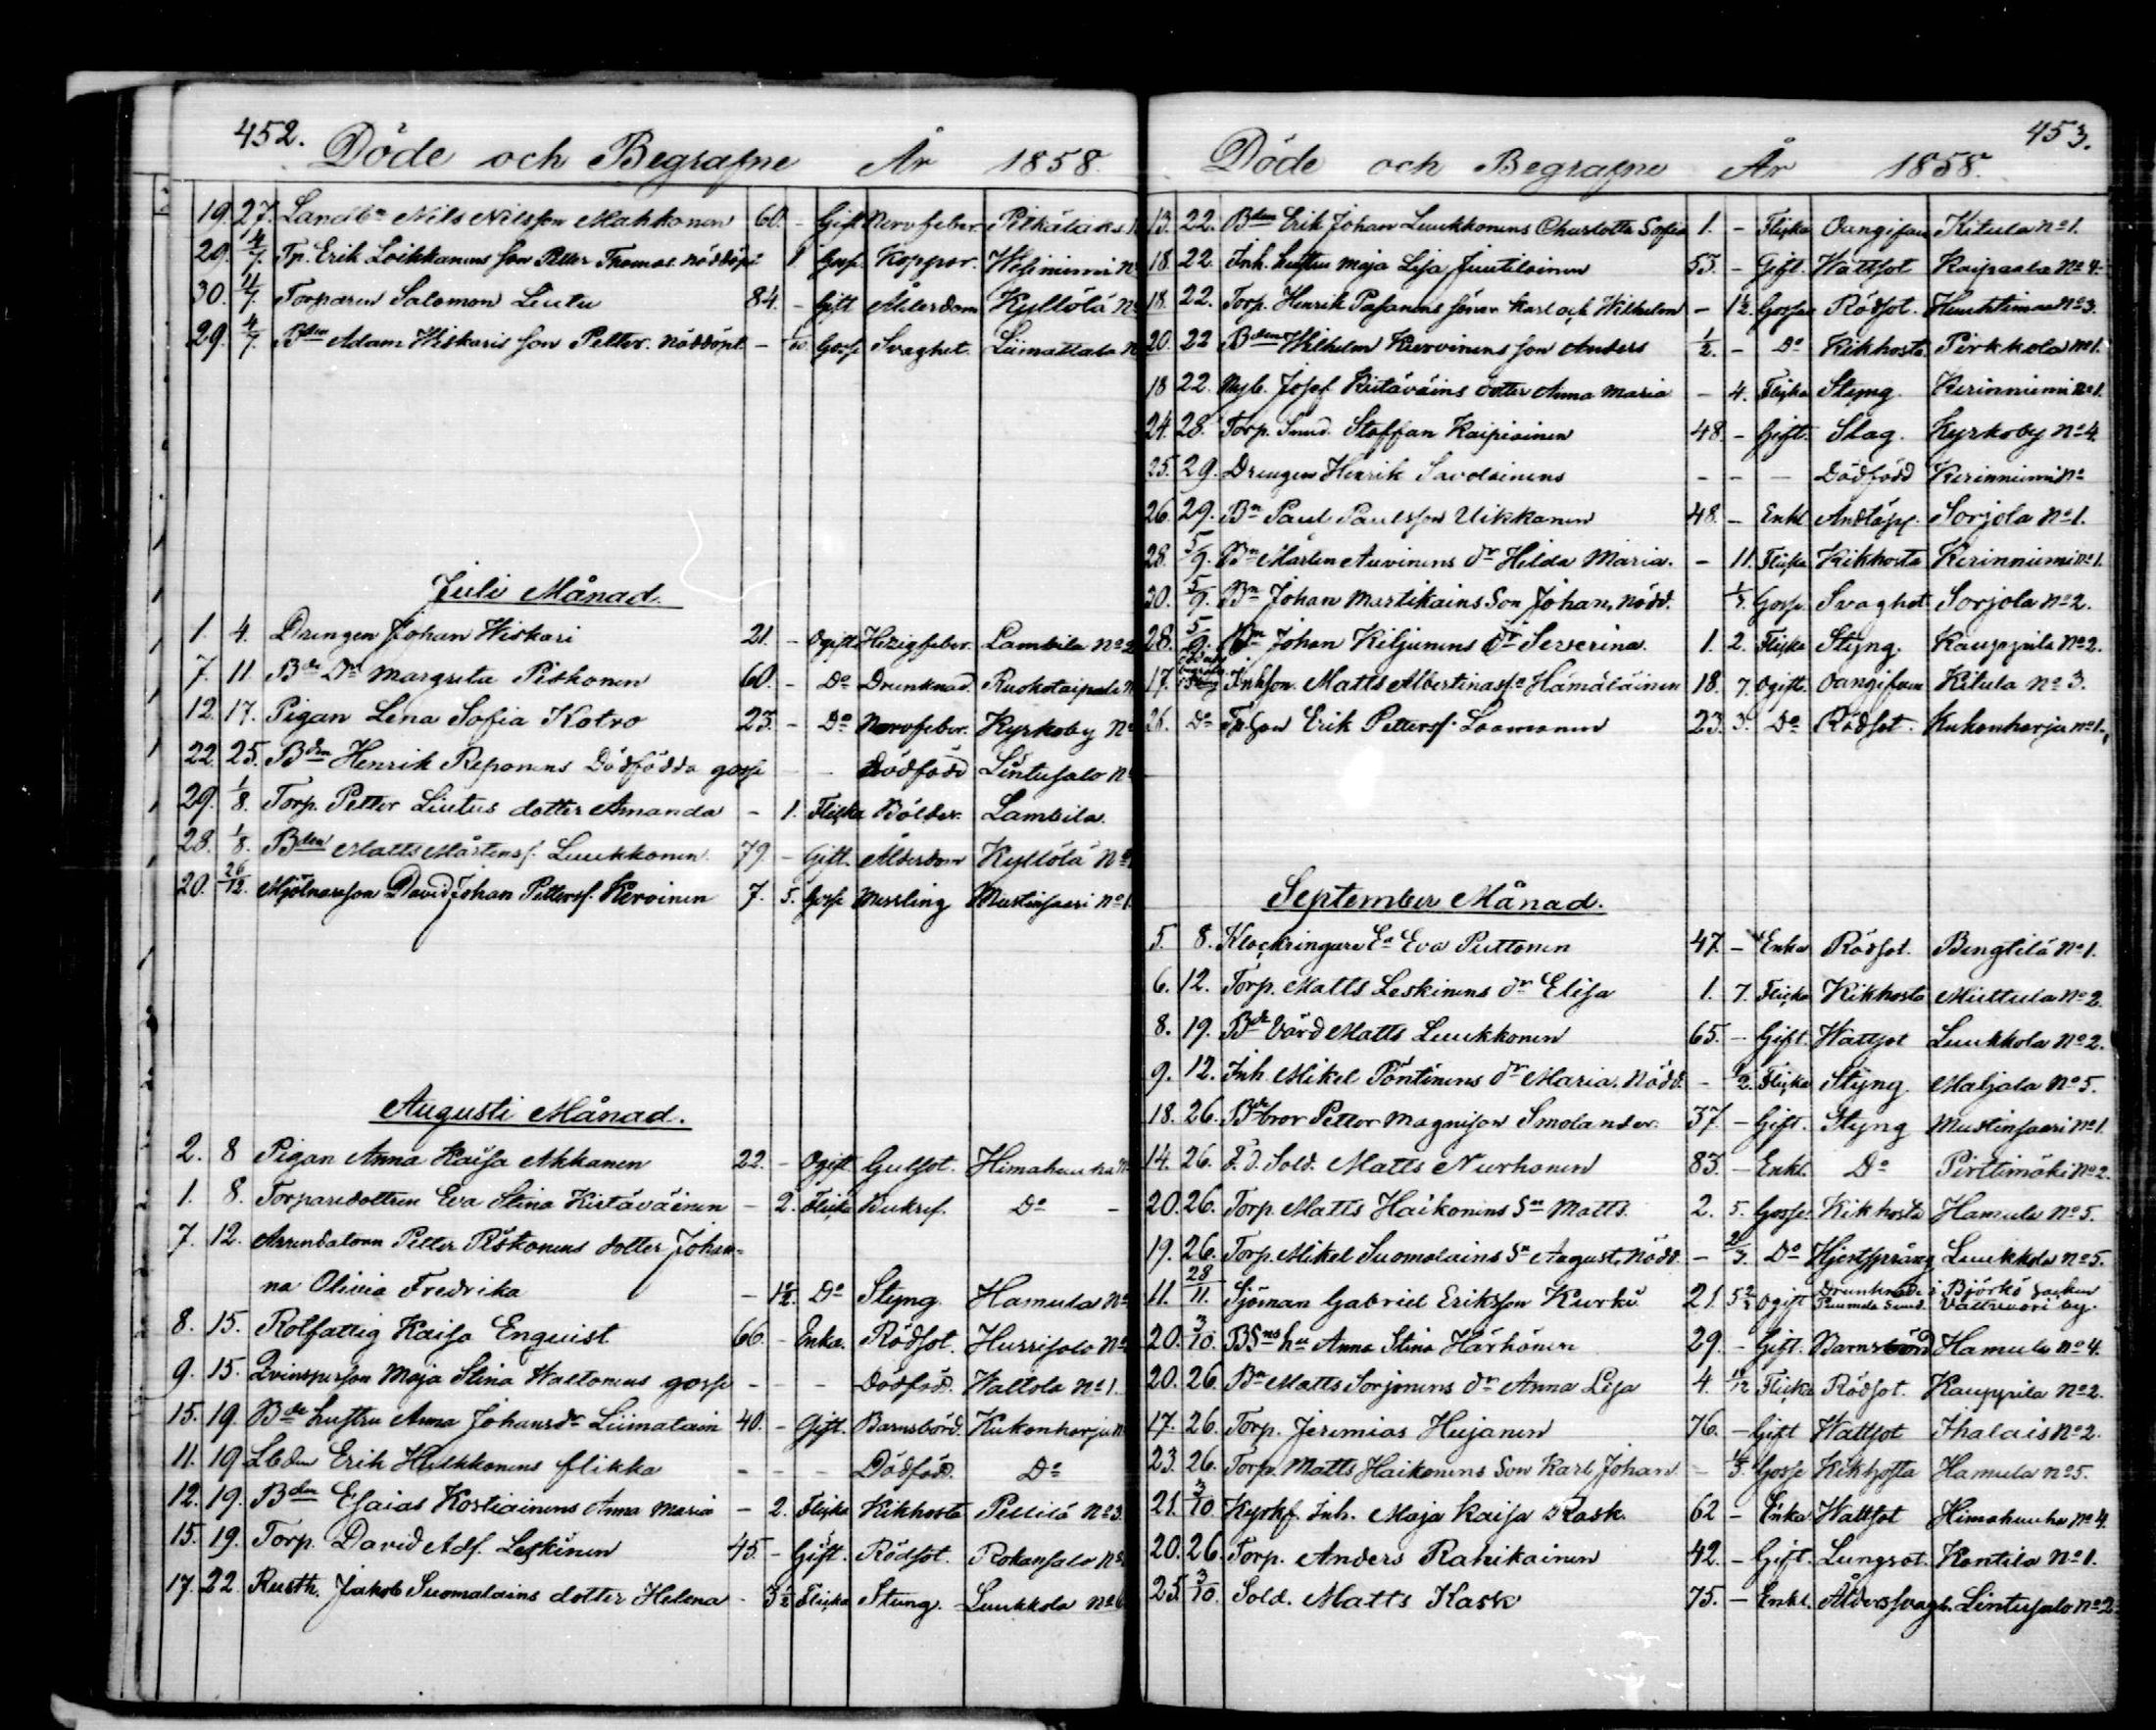 452.
Döde och Begrafne År 1858.
19. 27. Landb:n Nils Nilsson Mahkonen 60. - Gift Nervfeber. Pitkälaks
29. 4/7. Tp. Erik Loikkanens son Petter Thomas. nöddöpt 1 Goss. Koppor. Wiliminni N
30. 11/7. Torparen Salomon Liutu 84. - Gift Ålderdom Kyllölä No
29. 4/7. Bden Adam Hiskaris son Petter. nöddöpt. - 1/10 Goss Svaghet. Liimattala N
Juli Månad.
1. 4. Drengen Johan Hiskari 21. - Ogift Hizigfeber. Lambila No 2
7. 11. Bde Dr Margreta Piskonen 60. - Do Drunknad. Ruokotaipale N
12. 17. Pigan Lena Sofia Kotro 23. - Do Nervfeber. Kyrkoby No
22. 25. Bden Henrik Reponens Dödfödda gosse - - Dödfödd Lintusalo N
29. 1/8. Torp. Petter Liutus dotter Amanda - 1. Flicka Bölder. Lambila.
28. 1/8. Bden Matts Mårtenss. Luukkonen. 79. - Gift. Ålderdom Kyllölä No
20. 26/12. Mjölnaresson David Johan Petterss. Kervinen 7. 5. Goss Messling Mustinsaari No 1.
Augusti Månad.
2. 8 Pigan Anna Kaisa Ahkanen 22. - Ogift Gulsot. Himahuuha N
1. 8. Torparedottren Eva Stina Kiitäväinen - 2. Flicka Bukref. Do -
7. 12. Arrendatorn Petter Piskonens dotter Johan=
na Olivia Fredrika - 1 1/2. Do Styng. Hamula No
8. 15. Rotfattig Kaisa Enquist 66. - Enka. Rödsot. Hurrisalo No
9. 15. Qvinsperson Maja Stina Wattonens gosse - - - Dödfödd. Wattola No 1.
15. 19. Bde hustru Anna Johansdr Liimatain 40. - Gift. Barnsbörd. Kukonharju N
11. 19 Lbden Erik Hulkkonens flikka - - - Dödfödd. Do
12. 19. Bden Esaias Kostiainens Anna Maria - 2. Flicka Kikhosta Pellilä No 3.
15. 19. Torp. David Adf. Leskinen 45. - Gift. Rödsot. Rokansalo No
17. 22. Rusth. Jakob Suomalains dotter Helena - 3 1/2 Flicka Stung. Luukkola No 6
453.
Döde och Begrafne År 1858.
13. 22. Bden Erik Johan Luukkonens Charlotta Sofia 1. - Flicka Oangifven Kitula No 1.
18. 22. Inh. hustru Maja Lisa Juutilainen 53. - Gift. Wattsot Kaipaala No 4.
18. 22. Torp. Henrik Pasanens söner Karl och Wilhelm - 1 1/2. Gossar Rödsot. Huuhtimaa No 3.
20. 22 Bden Wilhelm Kervinens son Anders 1/2. - Do Kikhosta Pirkkola No 1.
18 22. Nyb. Josef Kiitäväins dotter Anna Maria - 4. Flicka Styng. Kerinniemi No 1.
24. 28. Torp. Smed. Staffan Kaipiainen 48. - Gift. Slag. Kyrkoby No 4.
25. 29. Drengen Henrik Savolainens - - - Dödfödd Kerinniemi No
26. 29. Bn Paul Paulsson Uikkanen 48. - Enkl Andtäpp. Sorjola No 1.
28. 5/9. Bn Mårten Auvinens dr Hilda Maria. - 11. Flicka Kikhosta Kerinniemi No 1.
30. 5/9. Bn Johan Martikains Son Johan, nödd. 1/7. Goss Svaghet Sorjola No 2.
28. 5/9. Bn Johan Kiljunens dr Severina. 1. 2. Flicka Styng. Kauppila No 2.
17. Inhson. Matts Albertinass:n Hämäläinen 18. 7. Ogift. Oangifven Kitula No 3.
26. Do Tp son Erik Petterss. Laamanen 23. 3. Do Rödsot. Kukonharju No 1.
September Månad.
5. 8. Klockringare Ea Eva Puttonen 47. - Enka Rödsot. Bengtilä No 1.
6. 12. Torp. Matts Leskinens dr Elisa 1. 7. Flicka Kikhosta Miettula No 2.
8. 19. Bde Värd Matts Luukkonen 65. - Gift. Wattsot Luukkola No 2.
9. 12. Inh Mikel Pöntinens dr Maria. Nödd. - 1/2. Flicka Styng Maljala No 5.
18. 26. Bde bror Petter Magnisson Smolander. 37. - Gift. Styng Mustinsaari No 1.
14. 26. F.d. Sold. Matts Nurhonen 83. - Enkl. Do Pirttimäki No 2.
20. 26. Torp. Matts Haikonens Sn Matts. 2. 5. Gosse. Kikhosta Hamula No 5.
19. 26. Torp. Mikel Suomalains Sn August, Nödd. - 2/3. Do Hjertsprång Luukkola No 5.
11. 28/11. Sjöman Gabriel Eriksson Kurki 21. 5 2/3 Ogift Drunknade i Björkö Socken
Puumala Sund. Vattuuori by.
20. 3/10. BSns hu Anna Stina Härkönen 29. - Gift. Barnsbörd Hamula No 4.
20. 26. Bn Matts Sorjonens dr Anna Lisa 4. 10/12 Flicka Rödsot. Kauppila No 2.
17. 26. Torp. Jeremias Hujanen 76. - Gift Wattsot Ihalais No 2.
23. 26. Torp. Matts Haikonens Son Karl Johan - 1/3. Gosse Kikhosta Hamula No 5.
21. 3/10. Kyrkf. Inh. Maja Kaisa Rask. 62 - Enka Wattsot Himahuuha No 4.
20. 26. Torp. Anders Rahikainen 42. - Gift. Lungsot. Kontila No 1.
25. 3/10. Sold. Matts Kask 75. - Enkl. Åldersvagh. Lintusalo No 2